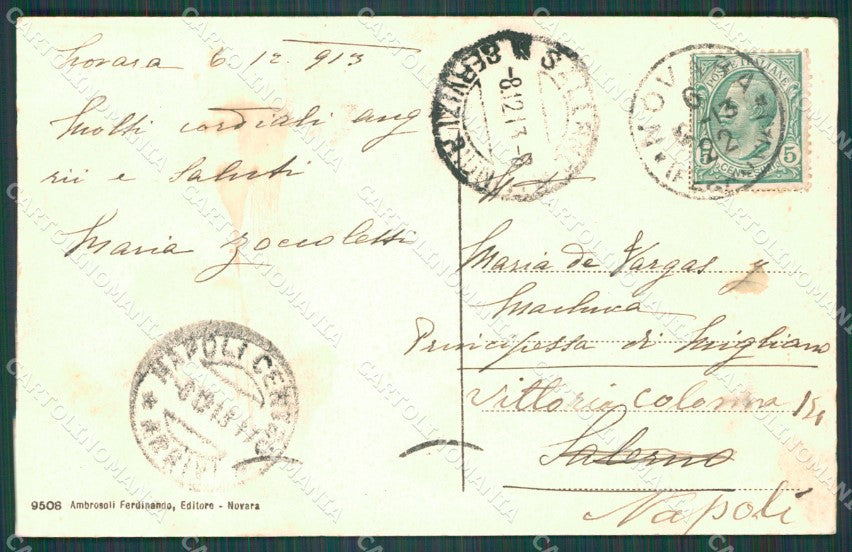 Novara 6 12 913
Molti cordiali aug
rii e saluti
Maria Zoccoletti
Maria de Vargas y
Machuca
Principessa di Migliano
Vittoria Colonna
Salerno
Napoli
POSTE ITALIANE
5
NOVARA
6
13
12
SERVIZI
-8.12.13-8
NAPOLI CENTRO
ARRIVI
9506 Ambrosoli Ferdinando, Editore - Novara
CARTOLINOMANIA